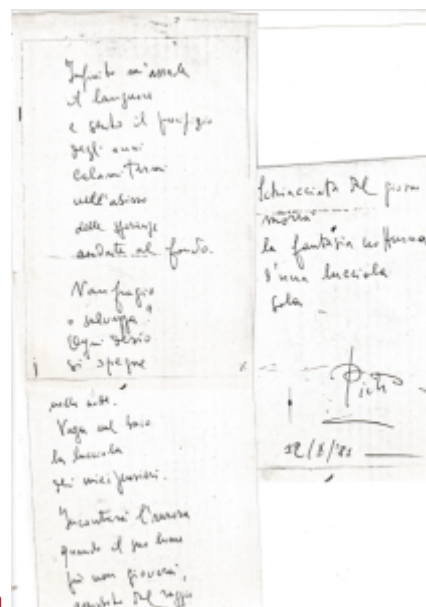 Infinito m'assale
il languore
e sento il prefigio
degli anni
calamitarmi
nell'abisso
delle speranze
andate al fondo.
Naufragio
o salvezza?
Ogni desio
si spegne
nella notte.
Vaga nel buio
la lucciola
dei miei pensieri.
Incontrerà l'aurora
quando il suo lume
più non gioverà,
del raggio
Schiacciata dal giorno
morrà
la fantasia notturna
d'una lucciola
sola